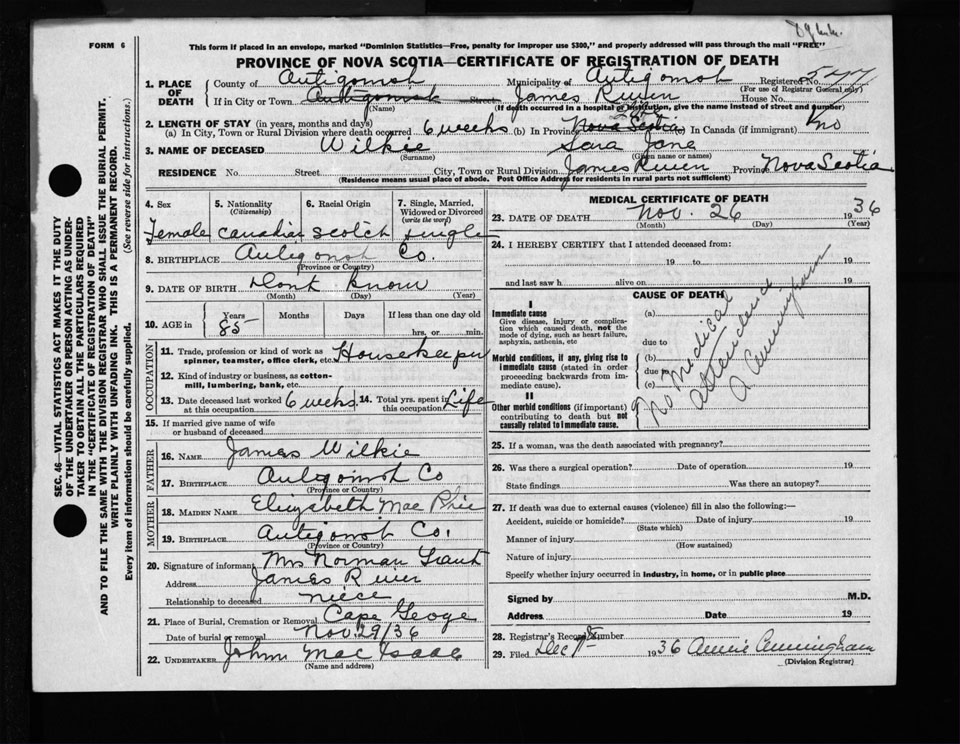 FORM 6
This form if placed in an envelope, marked "Dominion Statistics—Free, penalty for improper use $300," and properly addressed will pass through the mail "FREE"
PROVINCE OF NOVA SCOTIA—CERTIFICATE OF REGISTRATION OF DEATH
1. PLACE OF DEATH
County of Antigonish Municipality of Antigonish Registered No. 547
(For use of Registrar General only)
If in City or Town Antigonish Street James River House No.
(Name) (If death occurred in a hospital or institution, give the name instead of street and number)
2. LENGTH OF STAY (in years, months and days)
(a) In City, Town or Rural Division where death occurred 6 weeks (b) In Province Nova Scotia (c) In Canada (if immigrant) no
3. NAME OF DECEASED Wilkie Sara Jane
(Surname) (Given name or names)
RESIDENCE No. Street City, Town or Rural Division James River Province Nova Scotia
(Residence means usual place of abode. Post Office Address for residents in rural parts not sufficient)
4. Sex 5. Nationality (Citizenship) 6. Racial Origin 7. Single, Married, Widowed or Divorced (write the word)
Female Canadian Scotch Single
8. BIRTHPLACE Antigonish Co.
(Province or Country)
9. DATE OF BIRTH Dont Know
(Month) (Day) (Year)
10. AGE in Years Months Days If less than one day old
85 hrs. or min.
OCCUPATION
11. Trade, profession or kind of work as spinner, teamster, office clerk, etc. Housekeeper
12. Kind of industry or business, as cotton-mill, lumbering, bank, etc.
13. Date deceased last worked at this occupation 6 weeks 14. Total yrs. spent in this occupation Life
15. If married give name of wife or husband of deceased
FATHER
16. NAME James Wilkie
17. BIRTHPLACE Antigonish Co
(Province or Country)
MOTHER
18. MAIDEN NAME Elizabeth Mac Phie
19. BIRTHPLACE Antigonish Co.
(Province or Country)
20. Signature of informant Mrs Norman Grant
Address James River
Relationship to deceased niece
21. Place of Burial, Cremation or Removal Cape Geoge
Date of burial or removal Nov. 29/36
22. UNDERTAKER John Mac Isaac
(Name and address)
MEDICAL CERTIFICATE OF DEATH
23. DATE OF DEATH Nov. 26 1936
(Month) (Day) (Year)
24. I HEREBY CERTIFY that I attended deceased from:
19 to 19
and last saw h alive on 19
CAUSE OF DEATH
I
Immediate cause
Give disease, injury or complication which caused death, not the mode of dying, such as heart failure, asphyxia, asthenia, etc
(a)
due to
Morbid conditions, if any, giving rise to immediate cause (stated in order proceeding backwards from immediate cause).
(b)
due to
(c)
II
Other morbid conditions (if important) contributing to death but not causally related to immediate cause.
No medical
attendance
A Cunningham
25. If a woman, was the death associated with pregnancy?
26. Was there a surgical operation? Date of operation 19
State findings Was there an autopsy?
27. If death was due to external causes (violence) fill in also the following:—
Accident, suicide or homicide? Date of injury 19
(State which)
Manner of injury
(How sustained)
Nature of injury
Specify whether injury occurred in industry, in home, or in public place
Signed by M.D.
Address Date 19
28. Registrar's Record Number
29. Filed Dec 1936 Annie Cunningham
(Division Registrar)
SEC. 46—VITAL STATISTICS ACT MAKES IT THE DUTY
OF THE UNDERTAKER OR PERSON ACTING AS UNDER-
TAKER TO OBTAIN ALL THE PARTICULARS REQUIRED
IN THE "CERTIFICATE OF REGISTRATION OF DEATH"
AND TO FILE THE SAME WITH THE DIVISION REGISTRAR WHO SHALL ISSUE THE BURIAL PERMIT.
WRITE PLAINLY WITH UNFADING INK. THIS IS A PERMANENT RECORD.
Every item of information should be carefully supplied. (See reverse side for instructions.)